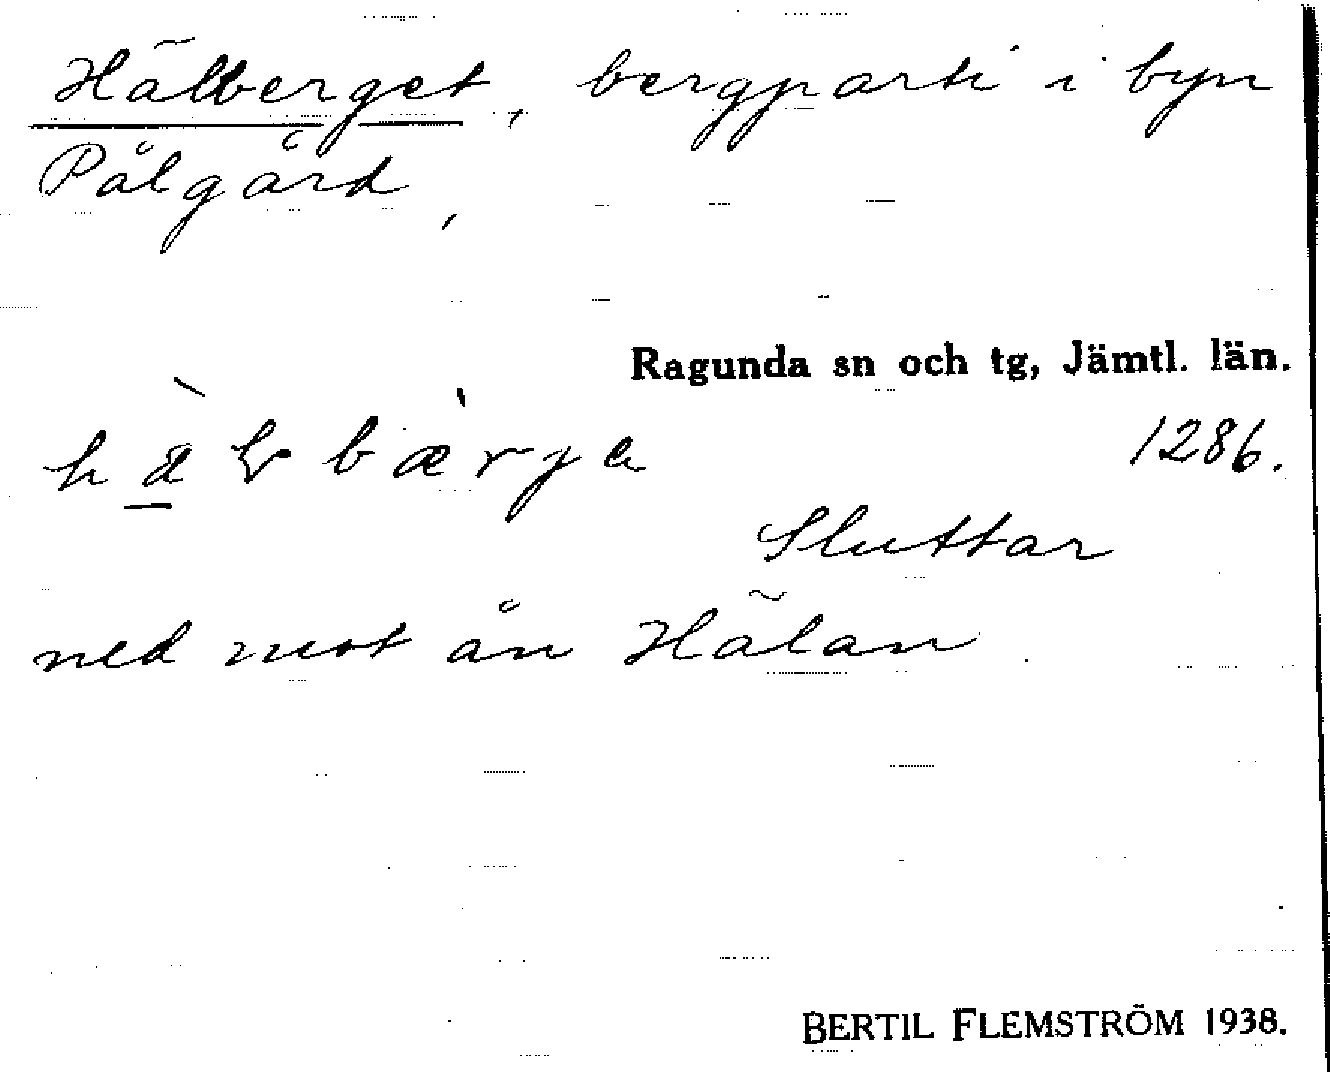 Hälberget, bergparti i byn
Pålgård,
Ragunda sn och tg, Jämtl. län.
1286.
Sluttar
ned mot ån Hälan.
BERTIL FLEMSTRÖM 1938.